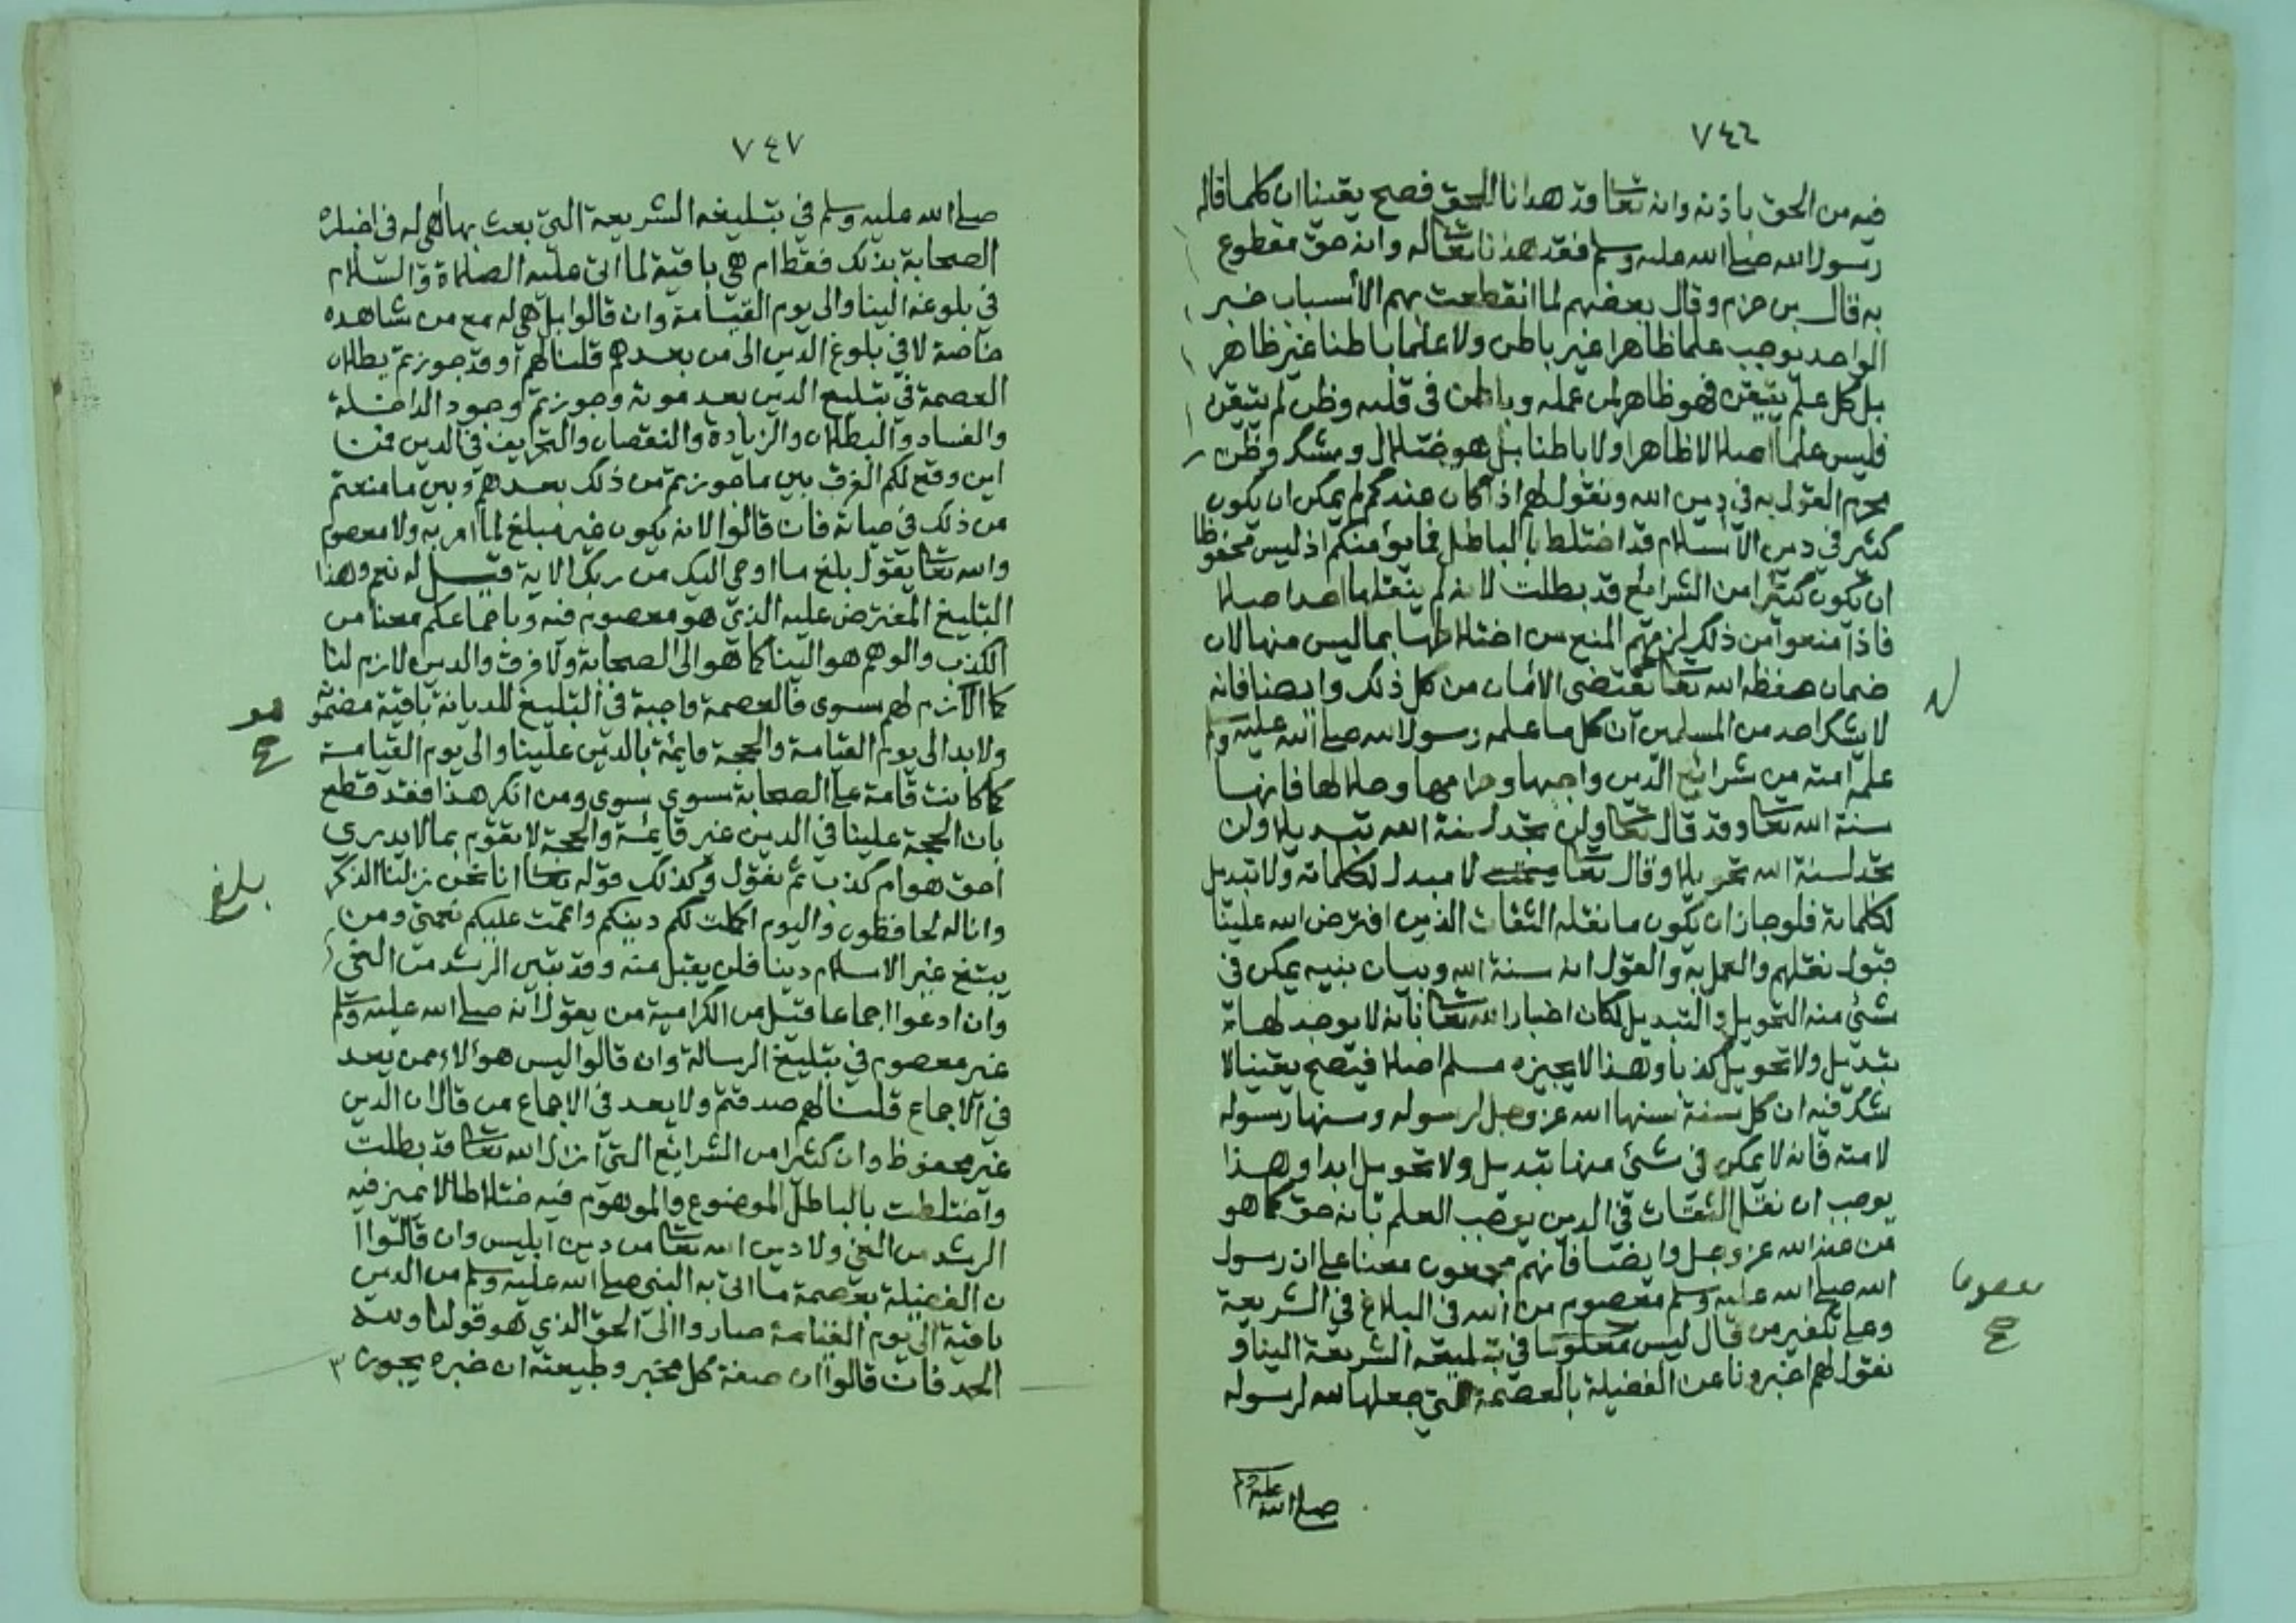 ٧٤٦
فيه من الحق باذنه وانه تعا قد هدانا للحق فصح يقينا ان كلما قاله
رسول الله صلى الله عليه وسلم فقد هدنا تعا له وانه حق مقطوع
به قال بن حزم وقال بعضهم لما انقطعت بهم الأسباب خبر
الواحد يوجب علما ظاهرا غير باطن ولا علما باطنا غير ظاهر
بل كل علم يتيقن فهو ظاهر لمن علمه وباطن فى قلبه وظن لم يتيقن
فليس علما اصلا لا ظاهرا ولا باطنا بل هو ضلال ومشك وظن
محرم القول به فى دين الله ونقول لهم اذا كان عندكم لم يمكن ان يكون
كثير في دين الاسلام قد اختلط بالباطل فما يؤمنكم اذ ليس محفوظا
ان يكون كثيرا من الشرائع قد بطلت لانه لم ينقلها احد اصلا
فاذا منعوا من ذلك لزمهم المنع من اختلاطها بما ليس منها لان
ضمان حفظ الله تعا يقتضى الأمان من كل ذلك وايضا فانه
لا يشك احد من المسلمين ان كل ما علمه رسول الله صلى الله عليه وسلم
علمه امته من شرائع الدين واجبها وحرامها وحلالها فانها
سنة الله تعا وقد قال تعا ولن تجد لسنة الله تبديلا ولن
تجد لسنة الله تحويلا وقال تعا لا مبدل لكلماته ولا تبديل
لكلماته فلو جاز ان يكون ما نقله الثقات الذين افترض الله علينا
قبول نقلهم والعمل به والقول انه سنة الله وبيان نبيه يمكن في
شئ منه التحويل والتبديل لكان اخبار الله تعا بانه لا يوجد لها
تبديل ولا تحويل كذبا وهذا لا يجيزه مسلم اصلا فيصح يقينا لا
شك فيه ان كل سنة سنها الله عز وجل لرسوله وسنها رسوله
لامته فانه لا يمكن في شئ منها تبديل ولا تحويل ابدا وهذا
يوجب ان نقل الثقات في الدين يوجب العلم بانه حق كما هو
من عند الله عز وجل وايضا فانهم مجمعون معنا على ان رسول
الله صلى الله عليه وسلم معصوم من الله فى البلاغ في الشريعة
معصوما
صح
وعلى تكفير من قال ليس في تبليغه الشريعة الينا و
نقول لهم اخبرونا عن الفضيلة بالعصمة التي جعلها الله لرسوله
صلى الله عليه وسلم
٧٤٧
صلى الله عليه وسلم في تبليغه الشريعة التي بعث بها أهى له فى اخباره
الصحابة بذلك فقط ام هي باقية لما اتى عليه الصلاة والسلام
في بلوغه الينا والى يوم القيامة وان قالوا بل هي له مع من شاهده
خاصة لا في بلوغ الدين الى من بعدهم قلنا لهم او قد جوزتم بطلان
العصمة في تبليغ الدين بعد موته وجوزتم وجود الداخلة
والفساد والبطلان والزيادة والنقصان والتحريف في الدين فمن
اين وقع لكم الفرق بين ما جوزتم من ذلك بعدهم وبين ما منعتم
من ذلك في حياته فان قالوا لانه يكون غير مبلغ لما امر به ولا معصوم
والله تعا يقول بلغ ما اوحى اليك من ربك الاية قيل له نعم وهذا
التبليغ المفترض عليه الذي هو معصوم فيه وباجماعكم معنا من
الكذب والوهم هو الينا كما هو الى الصحابة ولا فرق والدين لازم لنا
كما لازم لهم سوى فالعصمة واجبة في التبليغ للديانة باقية مضمونة
هو
صح
ولا بد الى يوم القيامة والحجة قايمة بالدين علينا والى يوم القيامة
كما كانت قامة على الصحابة سوى سوى ومن انكر هذا فقد قطع
بان الحجة علينا في الدين غير قايمة والحجة لا تقوم بما لا يدرى
احق هو ام كذب ثم نقول وكذلك قوله تعا انا نحن نزلنا الذكر
بلغ
وانا له لحافظون واليوم اكملت لكم دينكم واتممت عليكم نعمتي ومن
يبتغ غير الاسلام دينا فلن يقبل منه وقد تبين الرشد من الغي
وان ادعوا اجماعا قيل من الكرامية من يقول انه صلى الله عليه وسلم
غير معصوم في تبليغ الرسالة وان قالوا ليس هؤلاء ممن يعد
في الاجماع قلنا لهم صدقتم ولا يعد في الاجماع من قال ان الدين
غير محفوظ وان كثيرا من الشرايع التي انزل الله تعا قد بطلت
واختلطت بالباطل الموضوع والموهوم فيه ختلاطا لا يميز فيه
الرشد من الغي ولا دين الله تعا من دين ابليس وان قالوا ا
ن الفضيلة بعصمة ما اتى به النبي صلى الله عليه وسلم من الدين
باقية الى يوم القيامة صاروا الى الحق الذي هو قولنا ولله
الحمد فان قالوا ان صفة كل مخبر وطبيعته ان خبره يجوز